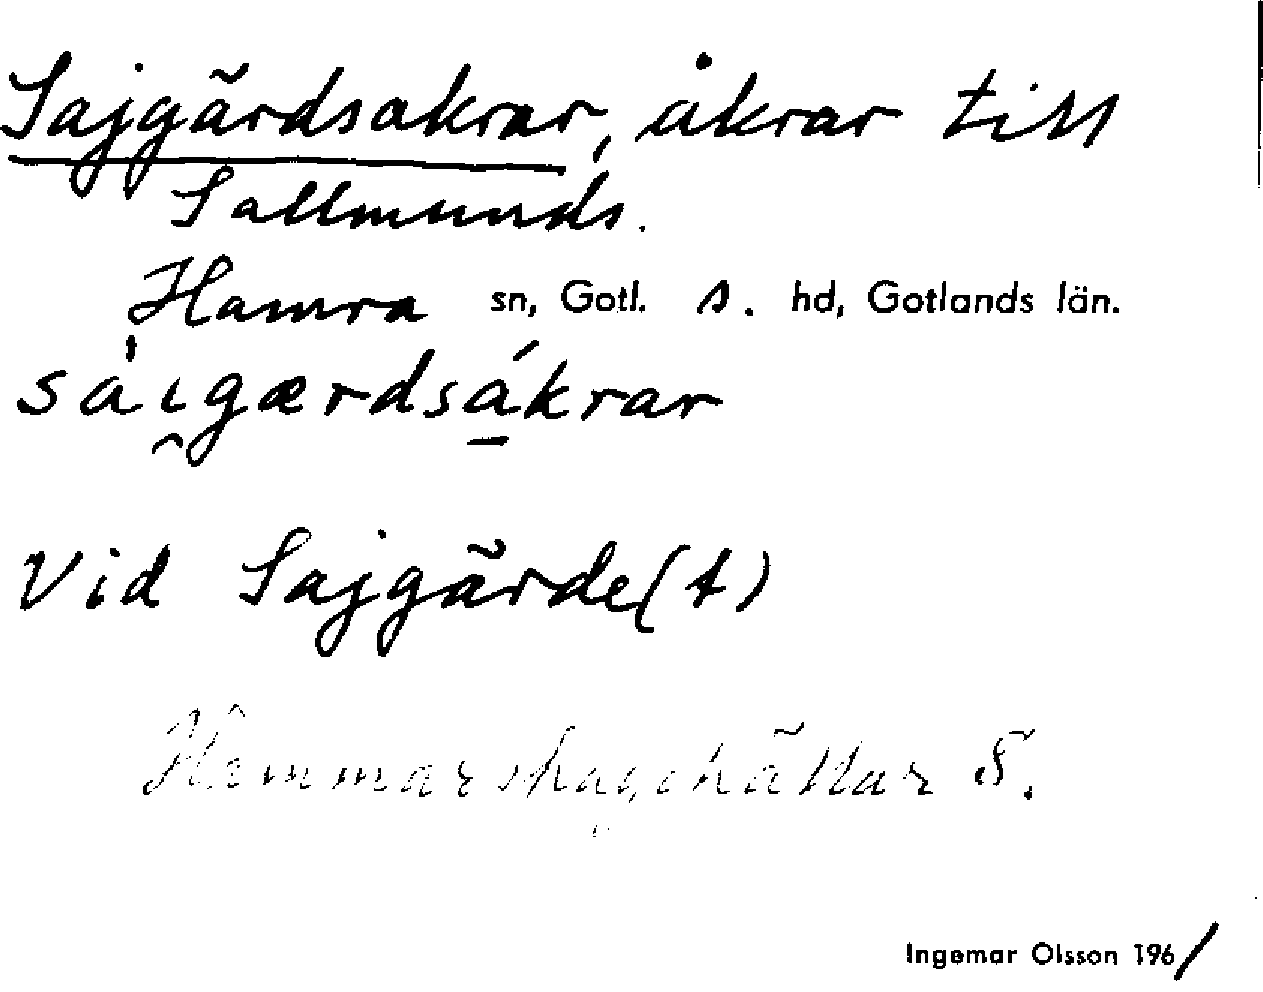 Sajgärdsakrar, åkrar till
Sallmunds.
Hamra sn, Gotl. s. hd, Gotlands län.
sàıgærdsákrar
Vid Sajgärde(t)
S.
Ingemar Olsson 1961